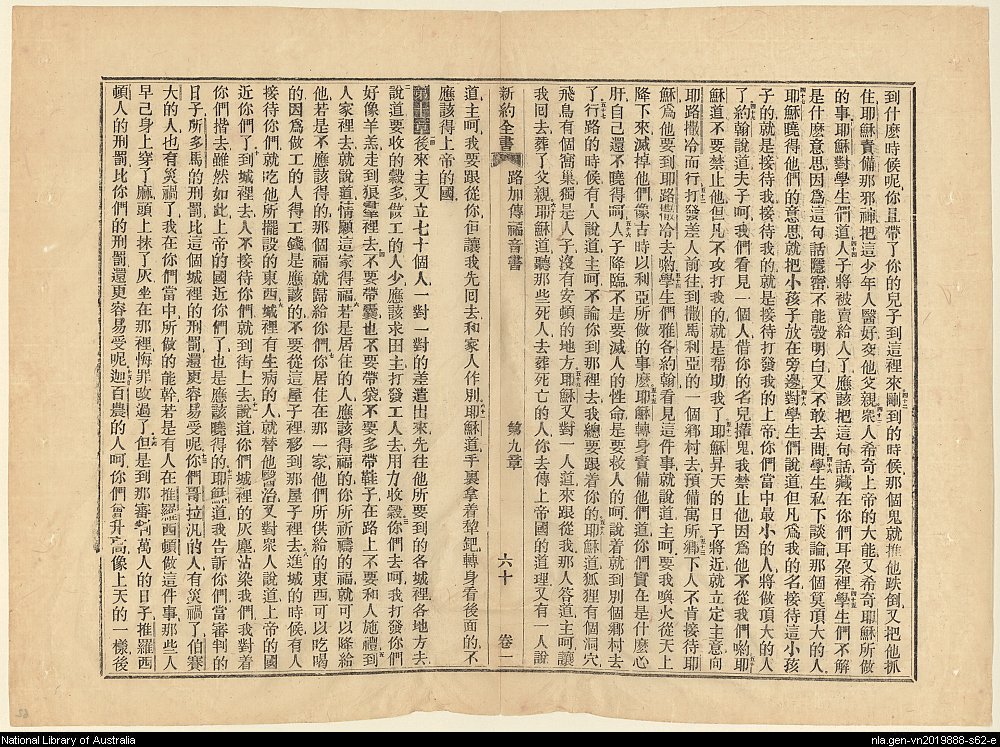 到什麼時候呢你且帶了你的兒子到這裡來剛到的時候那個鬼就推他跌倒又把他抓
住耶穌責備那邪神把這少年人醫好交他父親衆人希奇上帝的大能又希奇耶穌所做
的事耶穌對學生們道人子將被賣給人了應該把這句話藏在你們耳朶裡學生們不解
是什麼意思因爲這句話隱密不能彀明白又不敢去問學生私下談論那個算頂大的人
耶穌曉得他們的意思就把小孩子放在旁邊對學生們說道但凡爲我的名接待這小孩
子的就是接待我接待我的就是接待打發我的上帝你們當中最小的人將做頂大的人
了約翰說道夫子呵我們看見一個人借你的名兒攆鬼我禁止他因爲他不從我們喲耶
穌道不要禁止他但凡不攻打我的就是帮助我了耶穌昇天的日子將近就立定主意向
耶路撒冷而行打發差人前往到撒馬利亞的一個鄉村去預備寓所鄉下人不肯接待耶
穌爲他要到耶路撒冷去喲學生們雅各約翰看見這件事就說道主呵要我喚火從天上
降下來滅掉他們像古時以利亞所做的事麼耶穌轉身責備他們道你們實在是什麼心
肝自己還不曉得呵人子降臨不是要滅人的性命是要救人的呵說着就到別個鄉村去
了行路的時候有人說道主呵不論你到那裡去我總要跟着你的耶穌道狐狸有個洞穴
飛鳥有個窩巢獨是人子沒有安頓的地方耶穌又對一人道來跟從我那人答道主呵讓
我回去葬了父親耶穌道聽那些死人去葬死亡的人你去傳上帝國的道理又有一人說
新約全書 路加傳福音書 第九章 六十 卷一
道主呵我要跟從你但讓我先囘去和家人作別耶穌道手裏拿着犂鈀轉身看後面的不
應該得上帝的國
第十章後來主又立七十個人一對一對的差遣出來先往他所要到的各城裡各地方去
說道要收的穀多做工的人少應該求田主打發工人去用力收穀你們去呵我打發你們
好像羊羔走到狼羣裡去不要帶囊也不要帶袋不要多帶鞋子在路上不要和人施禮到
人家裡去就說道情願這家得福若是居住的人應該得福的你所祈禱的福就可以降給
他若是不應該得的那個福就歸給你們你居住在那一家他們所供給的東西可以吃喝
的因爲做工的人得工錢是應該的不要從這屋子裡移到那屋子裡去進城的時候有人
接待你們就吃他所擺設的東西城裡有生病的人就替他醫治又對衆人說道上帝的國
近你們了到城裡去人不接待你們就到街上去說道你們城裡的灰塵沾染我們我對着
你們揩去雖然如此上帝的國近你們了也是應該曉得的耶穌道我告訴你們當審判的
日子所多馬的刑罰比這個城裡的刑罰還更容易受呢你們哥拉汎的人有災禍了伯賽
大的人也有災禍了我在你們當中所做的能幹若是有人在推羅西頓做這件事那些人
早己身上穿了麻頭上抹了灰坐在那裡悔罪改過了但是到那審判萬人的日子推羅西
頓人的刑罰比你們的刑罰還更容易受呢迦百農的人呵你們曾升高像上天的一樣後
62
National Library of Australia
nla.gen-vn2019888-s62-e